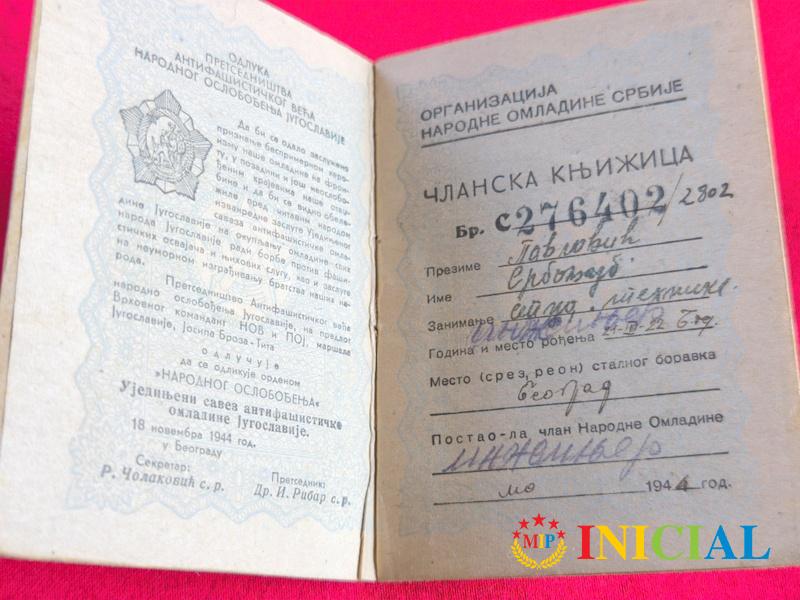 ОДЛУКА
ПРЕТСЕДНИШТВА
АНТИФАШИСТИЧКОГ ВЕЋА
НАРОДНОГ ОСЛОБОЂЕЊА ЈУГОСЛАВИЈЕ
Да би се одало заслужено
признање беспримерном херо-
изму наше омладине на фрон-
ту, у позадини и још неослобо-
ђеним крајевима наше отаџ-
бине и да би се видно обеле-
жиле пред читавим народом
изванредне заслуге Уједињеног
савеза антифашистичке омла-
дине Југославије на окупљању омладине свих
народа Југославије ради борбе против фаши-
стичких освајача и њихових слугу, као и заслуге
на неуморном изграђивању братства наших на-
рода.
Претседништво Антифашистичког већа
народно ослобођења Југославије, на предлог
Врховног команданта НОВ и ПОЈ, маршала
Југославије, Јосипа Броза-Тита
одлучује
да се одликује орденом
»НАРОДНОГ ОСЛОБОЂЕЊА«
Уједињени савез антифашистичке
омладине Југославије.
18 новембра 1944 год.
у Београду
Секретар:
Р. Чолаковић с. р.
Претседник:
Др. И. Рибар с. р.
ОРГАНИЗАЦИЈА
НАРОДНЕ ОМЛАДИНЕ СРБИЈЕ
ЧЛАНСКА КЊИЖИЦА
Бр. С276402/2802
Презиме Павловић
Име Србољуб
Занимање студ. технике
инжињер
Година и место рођења Бгд.
Место (срез, реон) сталног боравка
Београд
Постао-ла члан Народне Омладине
инжињер
1944 год.
MIP INICIAL